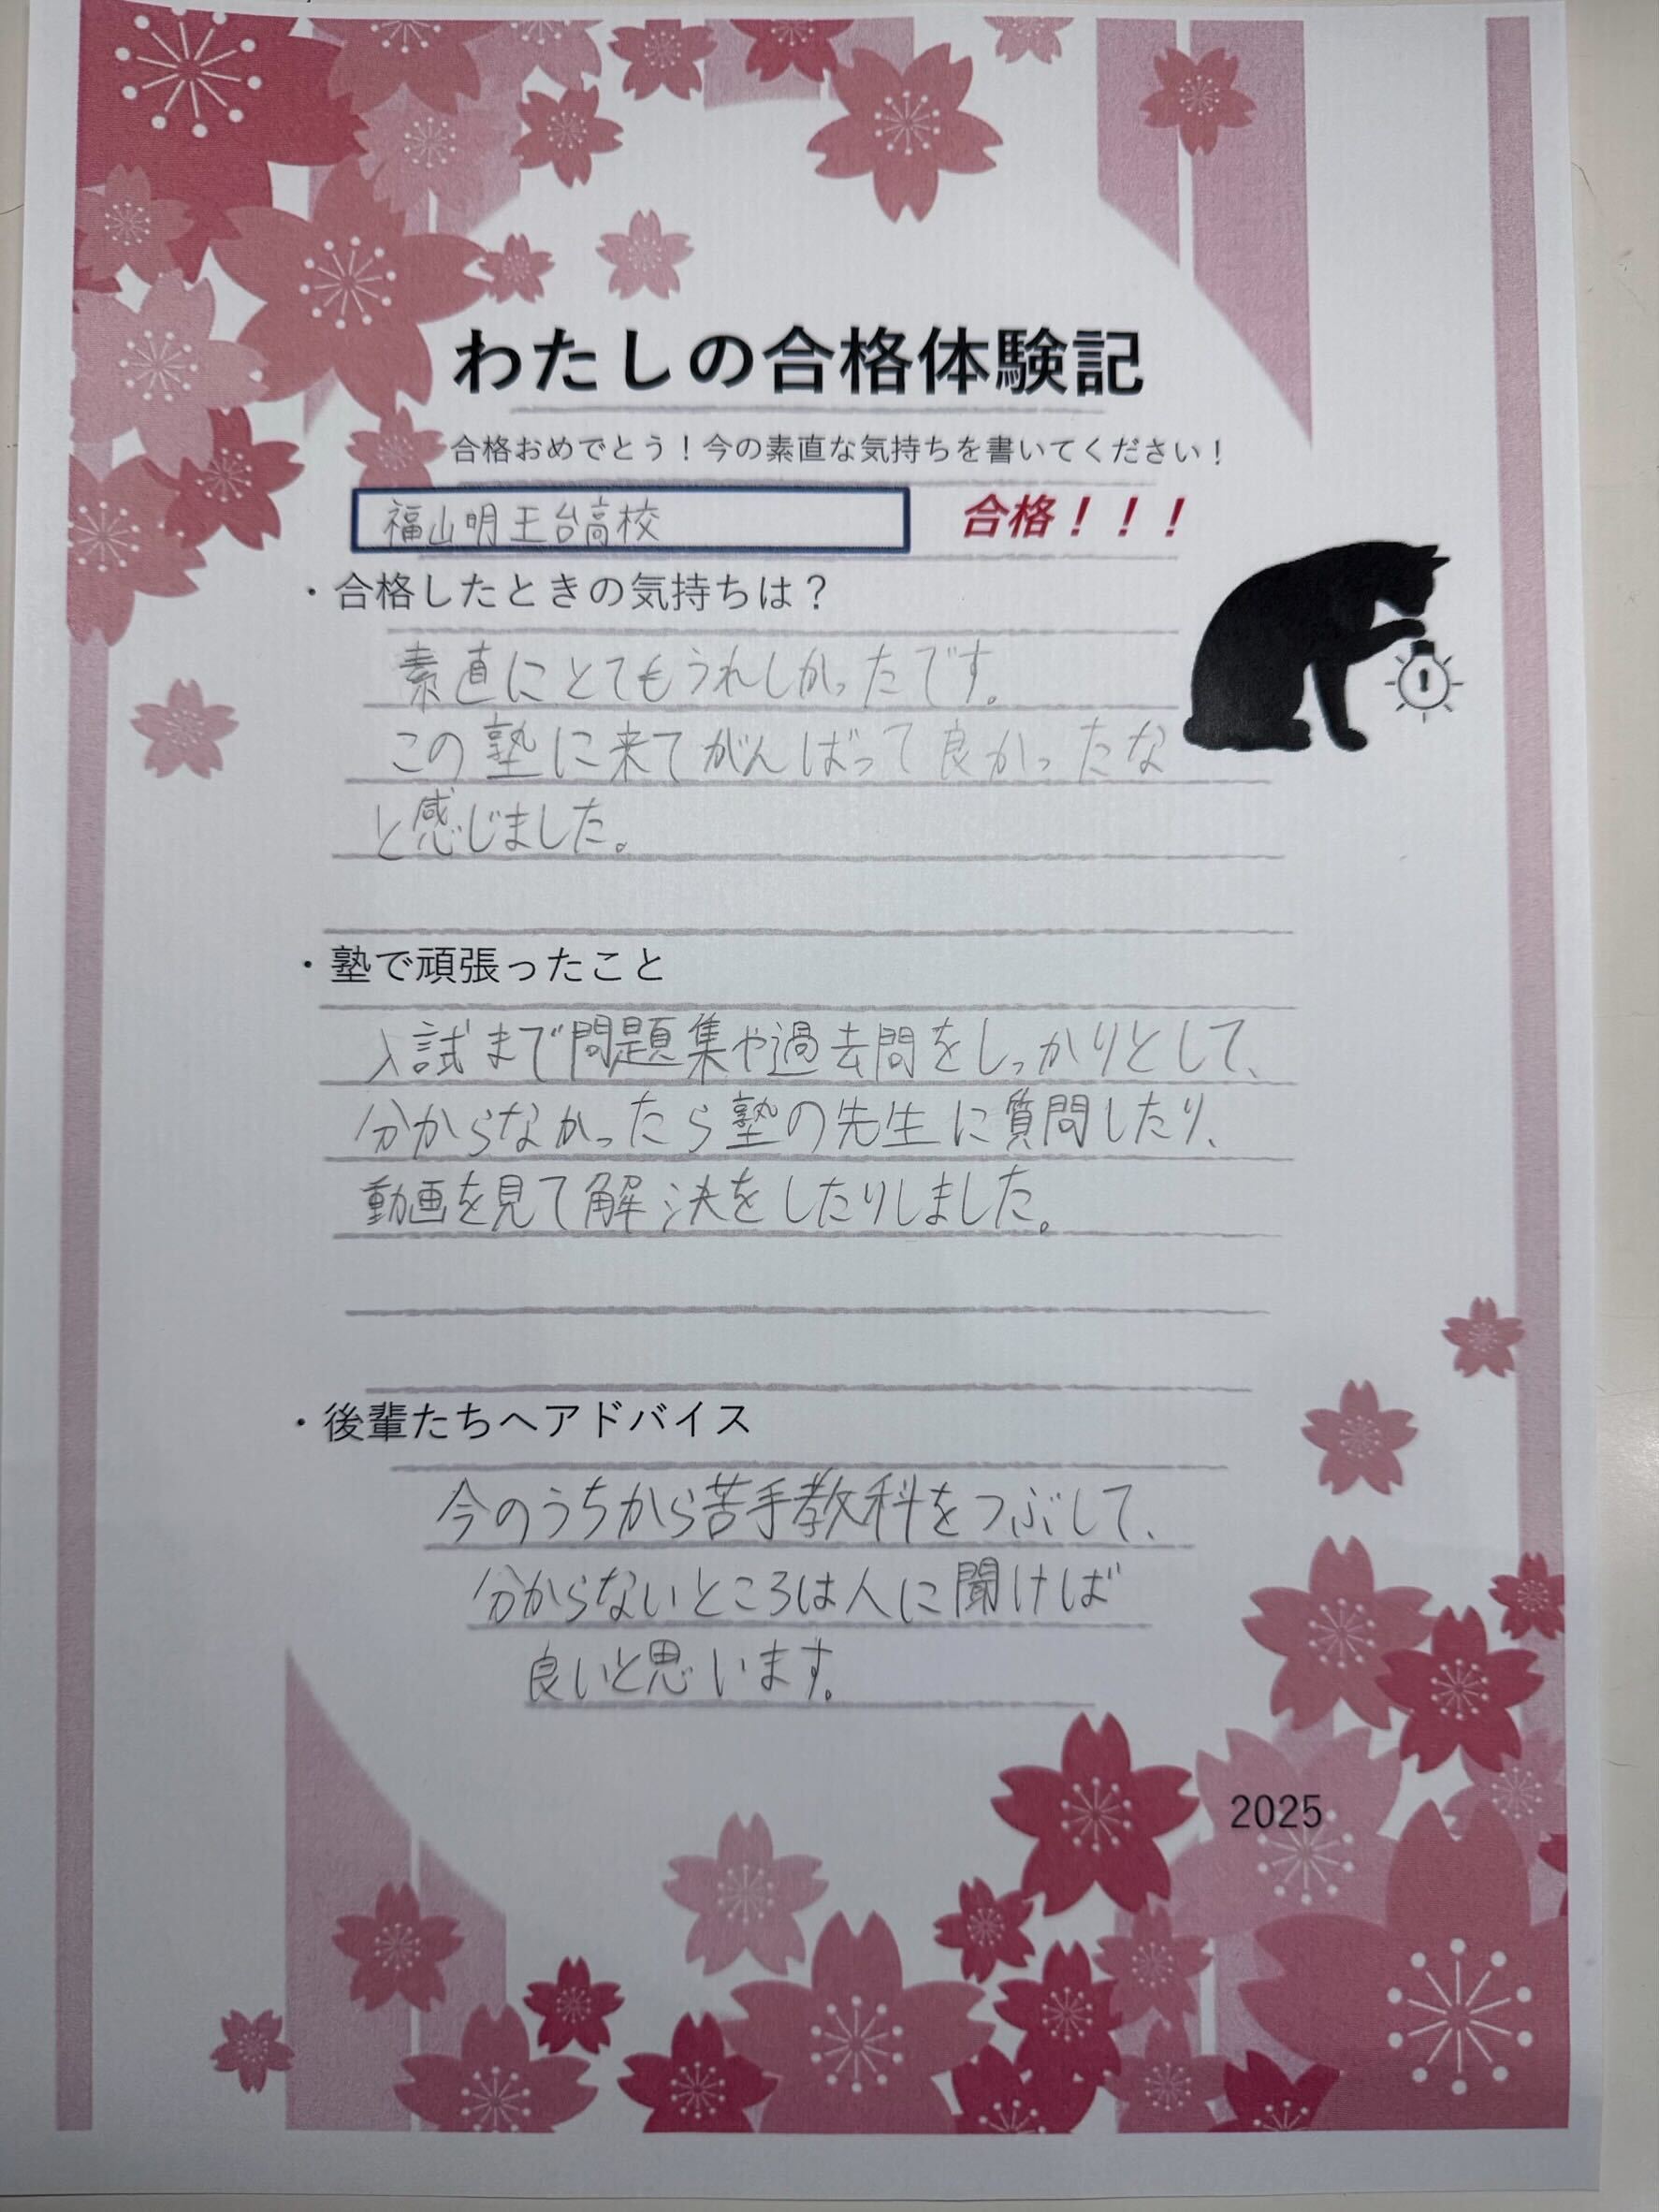 わたしの合格体験記
合格おめでとう！今の素直な気持ちを書いてください！
福山明王台高校
合格！！！
・合格したときの気持ちは？
素直にとてもうれしかったです。
この塾に来てがんばって良かったな
と感じました。
・塾で頑張ったこと
入試まで問題集や過去問をしっかりとして、
分からなかったら塾の先生に質問したり、
動画を見て解決をしたりしました。
・後輩たちへアドバイス
今のうちから苦手教科をつぶして、
分からないところは人に聞けば
良いと思います。
2025